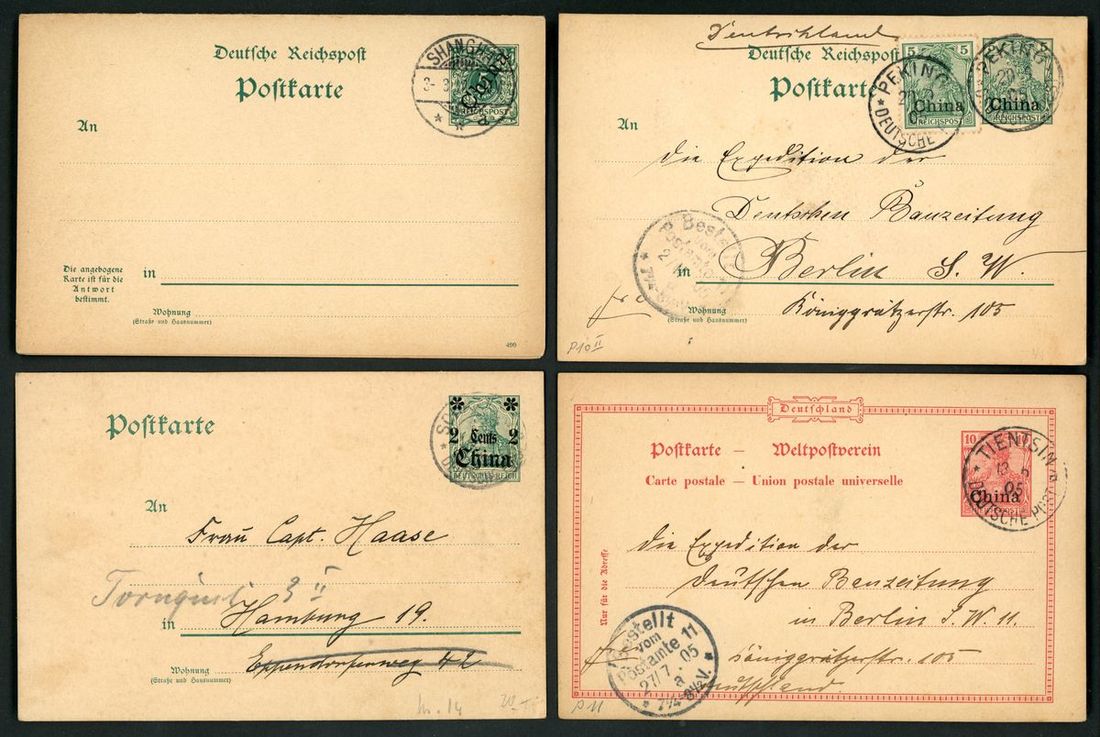 Deutsche Reichspost
Postkarte
SHANGHAI
China
REICHSPOST
An
Die angebogene
Karte ist für die
Antwort
bestimmt.
in
Wohnung
(Straße und Hausnummer)
499
Deutschland
Deutsche Reichspost
Postkarte
5 5
China
REICHSPOST
PEKING
DEUTSCHE
PEKING
China
REICHSPOST
An
die Expedition der
Deutschen Bauzeitung
in Berlin S. W.
Königgrätzerstr. 105
Wohnung
(Straße und Hausnummer)
P10 II
Postkarte
2 Cents 2
China
DEUTSCHES REICH
An
Frau Capt. Haase
Tornquist 3 II
in Hamburg 19.
Eppendorferweg 42
Wohnung
(Straße und Hausnummer)
Deutschland
Postkarte — Weltpostverein
Carte postale — Union postale universelle
10
China
TIENTSIN
05
DEUTSCHE POST
Nur für die Adresse
die Expedition der
deutschen Bauzeitung
in Berlin S. W. 11.
Königgrätzerstr. 105
Deutschland
Bestellt
vom
Postamte 11
27/7 05
a
7¼-8½V.
P 11